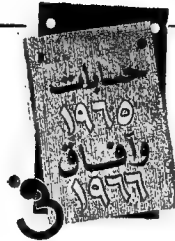 حصادات
١٩٦٥
وآفاق
١٩٦٦